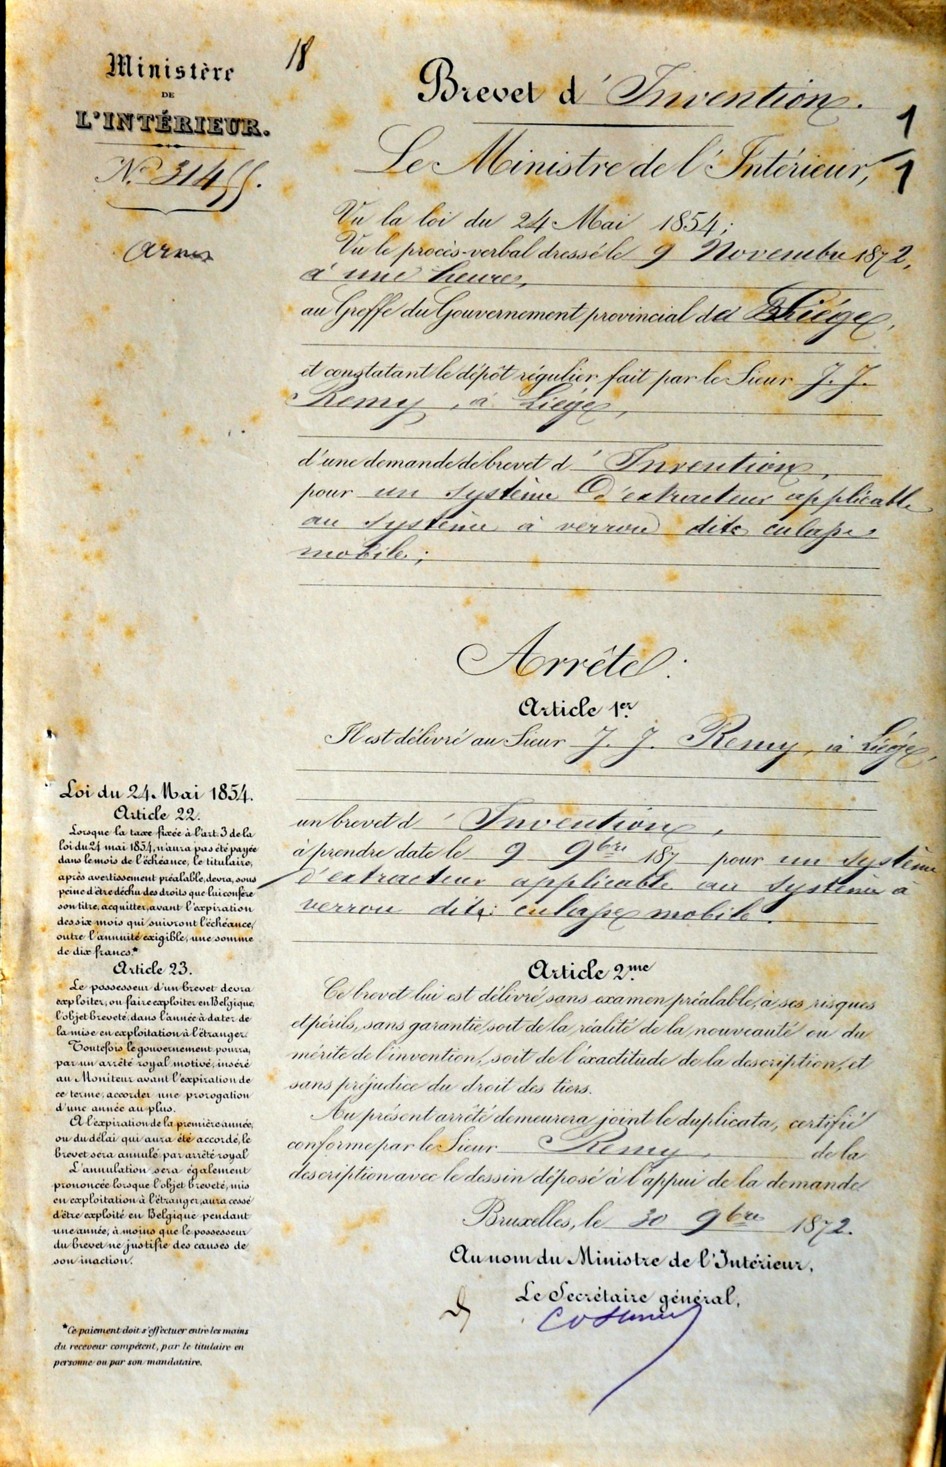 Ministère
DE
L'INTÉRIEUR.
N.º 31455.
armes
18
Brevet d'Invention.
1
1
Le Ministre de l'Intérieur,
Vu la loi du 24 Mai 1854;
Vu le procès-verbal dressé le 9 Novembre 1872,
à une heure,
au Greffe du Gouvernement provincial de Liége,
et constatant le dépôt régulier fait par le Sieur J. J.
Remy, à Liége,
d'une demande de brevet d'Invention,
pour un système d'extracteur applicable
au système à verrou dite culasse
mobile;
Arrête:
Article 1er.
Il est délivré au Sieur J. J. Remy, à Liége,
un brevet d'Invention,
à prendre date le 9 9bre 187 pour un système
d'extracteur applicable au système à
verrou dite culasse mobile.
Article 2me
Ce brevet lui est délivré sans examen préalable, à ses risques
et périls, sans garantie soit de la réalité de la nouveauté ou du
mérite de l'invention, soit de l'exactitude de la description, et
sans préjudice du droit des tiers.
Au présent arrêté demeurera joint le duplicata, certifié
conforme par le Sieur Remy, de la
description avec le dessin déposé à l'appui de la demande
Bruxelles, le 30 9bre 1872.
Au nom du Ministre de l'Intérieur,
Le Secrétaire général,
Loi du 24 Mai 1854.
Article 22.
Lorsque la taxe fixée à l'art. 3 de la
loi du 24 mai 1854, n'aura pas été payée
dans le mois de l'échéance, le titulaire,
après avertissement préalable, devra, sous
peine d'être déchu des droits que lui confère
son titre, acquitter, avant l'expiration
des six mois qui suivront l'échéance,
outre l'annuité exigible, une somme
de dix francs.*
Article 23.
Le possesseur d'un brevet devra
exploiter, ou faire exploiter en Belgique,
l'objet breveté, dans l'année à dater de
la mise en exploitation à l'étranger.
Toutefois le gouvernement pourra,
par un arrêté royal motivé, inséré
au Moniteur avant l'expiration de
ce terme, accorder une prorogation
d'une année au plus.
A l'expiration de la première année,
ou du délai qui aura été accordé, le
brevet sera annulé par arrêté royal
L'annulation sera également
prononcée lorsque l'objet breveté, mis
en exploitation à l'étranger, aura cessé
d'être exploité en Belgique pendant
une année, à moins que le possesseur
du brevet ne justifie des causes de
son inaction.
*Ce paiement doit s'effectuer entre les mains
du receveur compétent, par le titulaire en
personne ou par son mandataire.